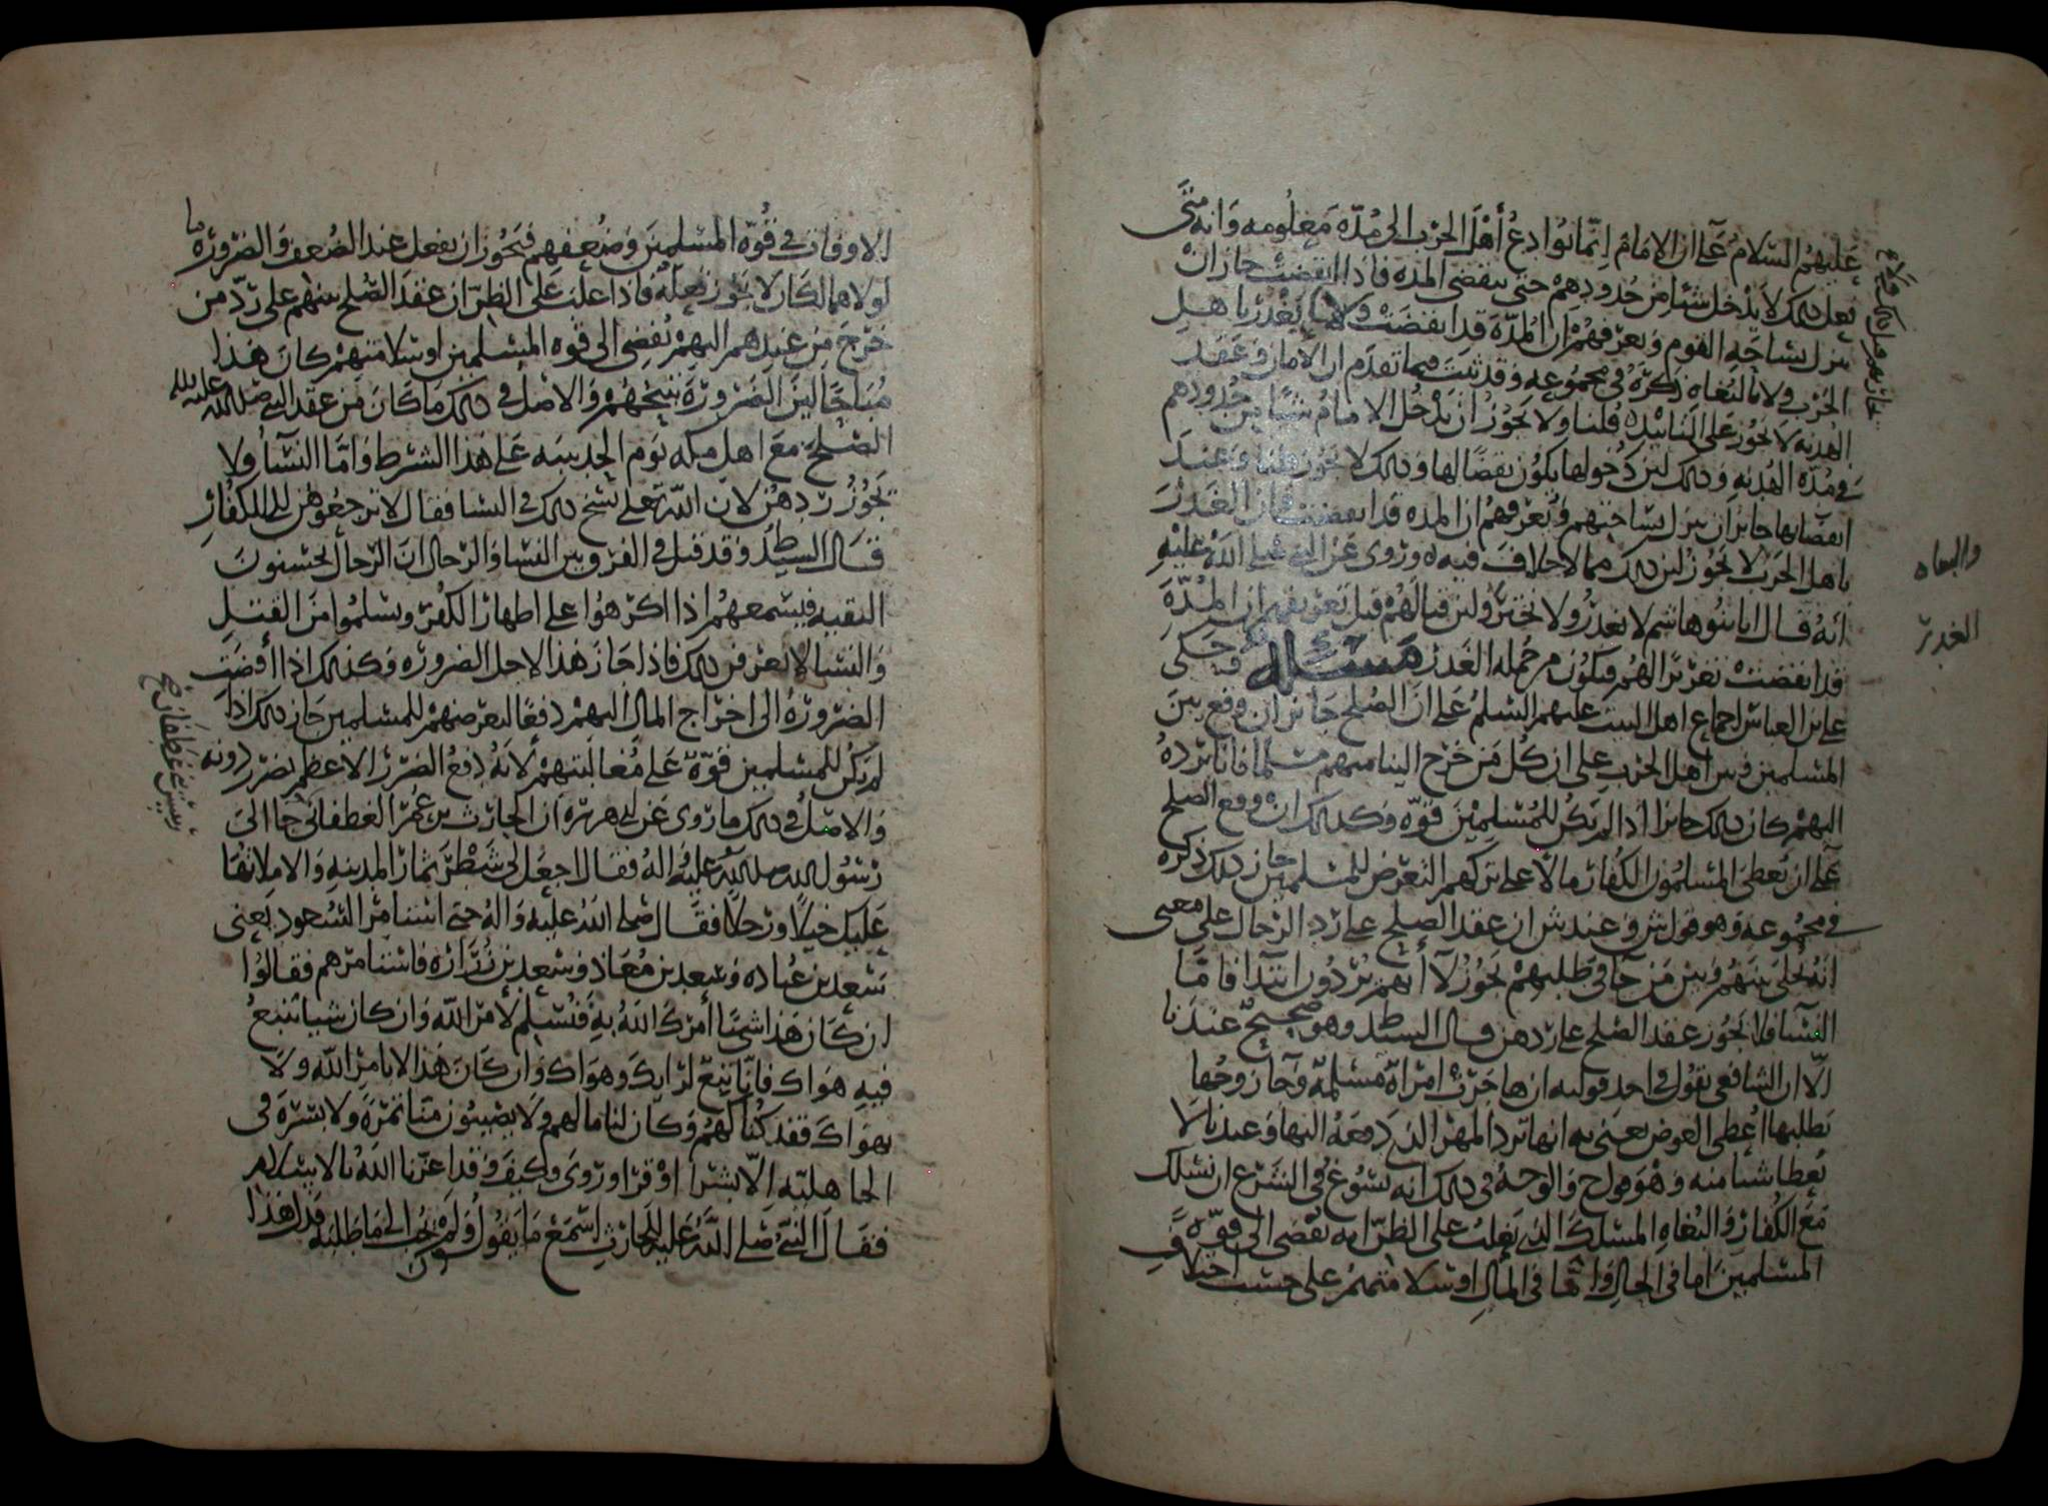 عَليهم السَّلامُ عَلَى ان الامَامَ اِنّما يُوَادِعُ أَهْلَ الحَرْبِ الى مُدّه مَعلُومه وَانه متَى
فعل ذلك لا يَدْخل شيئا من حُدودِهِمْ حتى ينقضى المده فاذا انقضتْ جاز انْ
ينزل بساحَةِ القوم وَيعرّفهُمْ ان المُدّةَ قد انقضَتْ ولا يَغْدرُ باهلِ
الحَرْب ولا بالبُغاه ذَكَرَهُ فى مجمُوعهِ وَقد ثبتَ فيما تقدّم ان الأمان وَعَقدَ
الهدنه لا يَجُوز عَلى التابيْد قلنا ولا يَجُوزُ انْ يَدْخُل الامامُ شيًا من حُدودهم
فى مُدّه الهُدنه وَذلك لانّ دُخولها يكوُن نقضًا لها وَذلك لا يَجوز قلنا وَعِندَ
انقضَائها جَائز ان ينزل بسَاحتهم وَيُعَرّفهُمْ ان المده قد انقضَت فان الغَدْرَ
باهل الحَرْب لا يَجُوز لانّ ذلك مما لا خلافَ فيه وَرُوى عَن النبى صَلى اللهُ عَليْهِ
انهُ قَال انا بَنُو هَاشم لا نغدرُ ولا نختر ولانّ قتالَهُمْ قبل تعريفهم ان المُدّةَ
قد انقضت تغريرًا لهُم فيكون من جُمله الغَدر مسئله وَحكى
على بن العباس اجماع اهل البيت عليهم السّلمُ عَلى انّ الصُلحَ جَائز ان وقع بينَ
المسلمين وبين اهل الحَرْب على ان كل مَن خَرَج الينا منهم مسْلما فانا نَردهُ
اليهمْ كان ذلك جَائزا اذا لم يَكُن للمُسْلِمِيْنَ قوّه وَكذلك ان وقع الصلح
عَلى ان يُعطىَ المُسلمُون الكفارَ مالًا عَلى تركهم التعَرُّض للمسْلمين جاز ذلك ذكره
فى مجمُوعه وَهو قول ش وعند ش ان عقد الصُّلح عَلى رَدِ الرّجَال على معنى
انهُ يُخلى بَينَهُم وَبَيْنَ مَن جَآ فى طلبهمْ يَجُوزُ لَآ أنهم يُرَدُّون ابتدآ فامّا
النّسَآ فلا يَجُوز عَقد الصّلح على رَدّهن قال السيد ط وَهو صَحيحٌ عندنا
الّا ان الشافعى يقوُل فى احد قوليه ان هاجَرَتْ امرَاةٌ مُسْلمهٌ وَجآ زوجُها
يَطلبها اُعْطى العوض يعنى به انها تَرد المهْرَ الذى دَفعَهُ اليها وَعندنا لا
يُعطا شيًا منه وَهُوَ قول ح وَالوجهُ فى ذلك انه يَسُوغ فى الشرْع ان نسْلكَ
مَعَ الكفار وَالبُغاه المسْلكَ الذى يَغلبُ على الظنّ انه يُفضى الى قوّه
المسْلمينَ اما فى الحال وَامّا فى المَالِ اوسَلامتهمْ على حَسَب اختلافِ
جاز
والبغاه
الغدر
الاوقات فى قُوّه المُسلمينَ وَضُعفهم فيَجُوز ان يفعل عند الضُعف وَالضروُره ما
لولاهما لكَان لا يَجُوز فعلهُ فاذا غلبَ عَلى الظنّ ان عَقدَ الصُّلح بينهم على رَدّ من
خَرَجَ مِن عندِهم اليهمْ يُفضِى الى قوه المسْلمين اوسَلامتهمْ كانَ هَذا
مُبَاحًا لانّ الضرُورَةَ تبيْحُهُمْ وَالاصْل فى ذلك مَا كَانَ مَن عَقد النبى صَلى الله عليه
الصّلحَ مَعَ اهل مكه يَوم الحُديبيه عَلى هَذا الشّرط وَامّا النّسَآ فلا
يَجُوزُ رَدهُن لان اللّهَ تعلى نسَخ ذلك فى النسا فقال لا ترجعُوهُن الى الكفُارِ
قَال السيد ط وَقد قيل فى الفرق بين النسَا وَالرّجال ان الرّجال يُحْسِنونَ
التقيه فيتسعهُم اذا اكْرِهوُا على اظهَار الكُفرِ وَيسْلمُوا مِنَ القتلِ
وَالنّسَا لا يعرفن ذلك فاذا جَاز هَذا لاجل الضرُوره وَكذلك اذا أفضَتِ
الضرُورَهُ الى اخرَاج المال اليهمْ دفعًا لتعرّضهمْ للمسلمين جَاز ذلك اذا
لم يَكُن للمسْلمين قُوّهٌ عَلى مُغالبَتِهِمْ لانهُ دَفعُ الضرَر الاعظم بضرَرٍ دونه
وَالاصْل فى ذلك ما رُوى عَن ابى هريره ان الحارث بن عَمْرو الغطفانى جَا الىَ
رَسُول الله صلى الله عَليْه وَاله فقَال اجعَل لى شَطْرَ ثمار المدينه وَالا ملاتها
عَليْك خيلًا وَرَجلًا فقَال صَلى اللهُ عَليْه وَالهُ حتى استامر السّعُود يَعنى
سَعدَ بن عُبَاده وَسَعد بن مُعَاذ وَسَعدَ بْن زُرَاره فاستامرهم فقالوُا
ان كَان هَذا شيئًا امرَكَ اللّهُ بهِ فنُسَلم لامر اللّه وَان كان شيئا تتبعُ
فيهِ هوَاك فانّا نتبعُ لرَايكَ وَهوَاكَ وَان كَانَ هَذا لا بامر اللّه ولا
بهوَاكَ فقد كُنّا لهُمْ وَكَان لنا ما لهم وَلا يصْيبُون منا تمرَةً ولا بُسْرَة فى
الجاهليّه الّا بشرًا اوْ قِرًا وَرُوىَ وَكيفَ وَقد اعزّنا اللّهُ بالاسْلام
فقَالَ النّبى صَلى اللّهُ عَليه للحَارث اسْمَعْ مَا يَقُولُونَ وَلَمْ يُجب الى مَا طَلبَهُ فَدَل هَذا